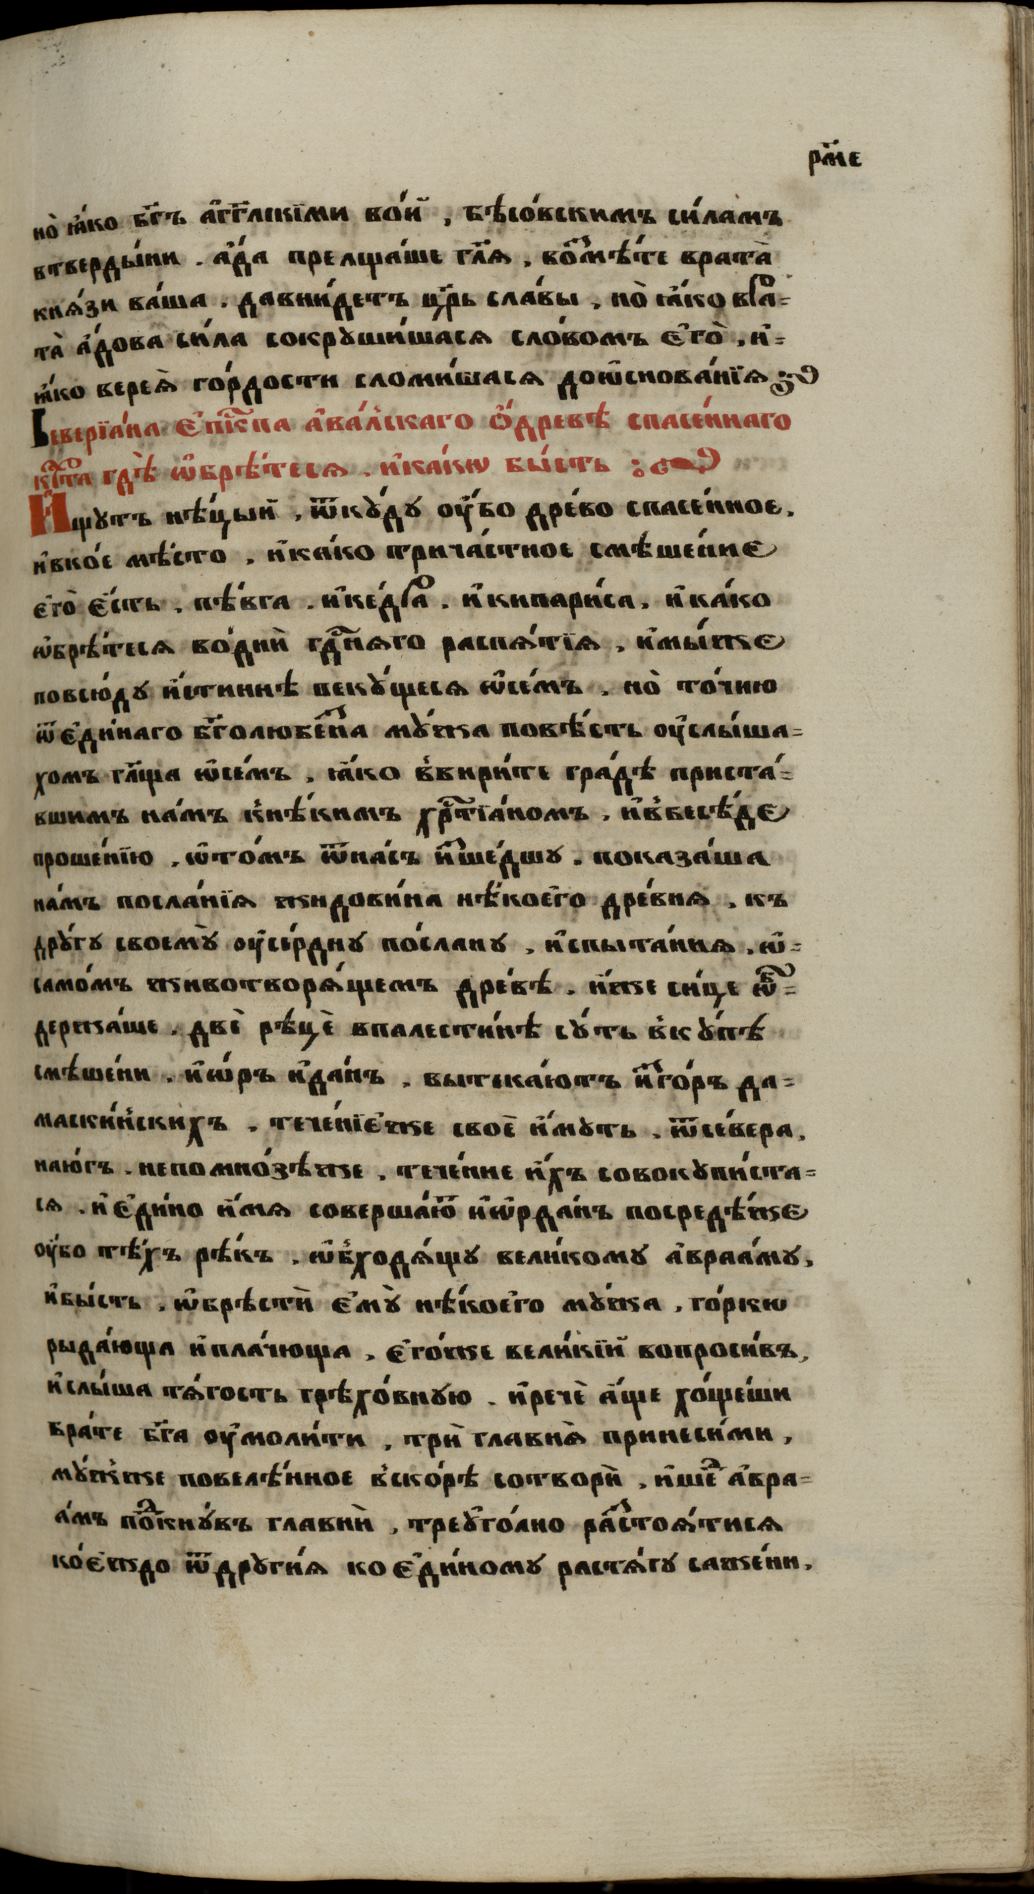 рм҃е
но̀ ꙗ҆́ко бг҃ъ а҆гг҃лскїми во́и҆ , бѣсо́вскимъ си́ламъ
втверды́ни . а҆́да прелщаше гл҃ѧ . возмѣ́те врата̀
кнѧ́зи ва́ша . давни́детъ цр҃ь сла́вы , но̀ ꙗ҆́ко вра-
та̀ а҆́дова си́ла сокрꙋши́шасѧ сло́вомъ є҆го̀ , и҆-
ꙗ҆́ко верея̀ го́рдости сломи́шасѧ доѡ҆снова́нїѧ
Северїа́на є҆пⷭ҇кпа а҆ва́лскаго ѻ҆́древѣ спасе́ннаго
крⷭ҇та гдѣ̀ ѡ҆брѣ́тесѧ . и҆ка́кѡ бы́сть :
И҆щꙋтъ нѣ́цый , ѿкꙋ́дꙋ оу҆́бо дре́во спасе́нное ,
и҆вко́е мѣ́сто , и҆ка́ко трича́стное смѣше́ние
є҆го̀ є҆́сть , пѣ́вга . и҆ке́дра . и҆кипари́са , и҆ка́ко
ѡ҆брѣ́тесѧ во́дни гдⷭ҇нѧго распѧ́тїѧ , и҆мы́же
повсю́дꙋ и҆́стиннѣ пекꙋ́щесѧ ѡ҆се́мъ . но̀ то́чию
ѿє҆ди́наго бг҃олюбе́зна мꙋ́жа повѣ́сть оу҆слы́ша-
хомъ гл҃ща ѡ҆се́мъ , ꙗ҆́ко в҆вири́те гра́дѣ приста́-
вшимъ на́мъ к҆нѣ́кимъ хрⷭ҇тїа́номъ , и҆в҆бесѣ́де
проше́нїю , ѡ҆то́мъ ѿна́съ и҆зше́дшꙋ . показа́ша
на́мъ посла́нїѧ жидови́на нѣ́коего дре́внѧ , къ
дрꙋ́гꙋ своемꙋ̀ оу҆се́рднꙋ по́сланꙋ , и҆спыта́ниѧ , ѡ҆-
само́мъ животворѧ́щемъ дре́вѣ . и҆́же си́це ѡ҆б-
держа́ше . двѣ̀ рѣ́цѐ впалести́нѣ сꙋ́ть в҆кꙋ́пѣ
смѣше́ни . и҆ѡ́ръ и҆да́нъ , вытека́ютъ и҆зго́ръ да-
маски́нскихъ , тече́нїе҆же своѐ и҆́мꙋть , ѿсе́вера ,
наю́гъ . непомно́зѣже , тече́ние и҆́хъ совокꙋпи́ста-
сѧ . и҆є҆ди́но и҆́мѧ соверша́ю҆т и҆ѡ҆рда́нъ посредѣ́же
оу҆́бо тѣ́хъ рѣ́къ , ѡ҆б҆ходѧ́щꙋ вели́комꙋ а҆враа́мꙋ ,
и҆бы́сть , ѡ҆брѣ́сти є҆мꙋ̀ нѣ́коего мꙋ́жа , го́ркѡ
рыда́юща и҆пла́чюща , є҆го́же вели́кїй вопроси́въ ,
и҆слы́ша тѧ́гость грѣхо́вную . и҆речѐ а҆́ще хо́щеши
бра́те бг҃а оу҆моли́ти , трѝ главня̀ принеси́ми ,
мꙋ́ж҆же повелѣ́нное в҆ско́рѣ сотворѝ , и҆ше́д а҆вра-
а́мъ подткнꙋ́въ главнѝ , треоу҆го́лно разстоѧ́тисѧ
ко́е҆ждо ѿдрꙋги́ѧ ко є҆ди́номꙋ растѧ́гꙋ саже́ни ,